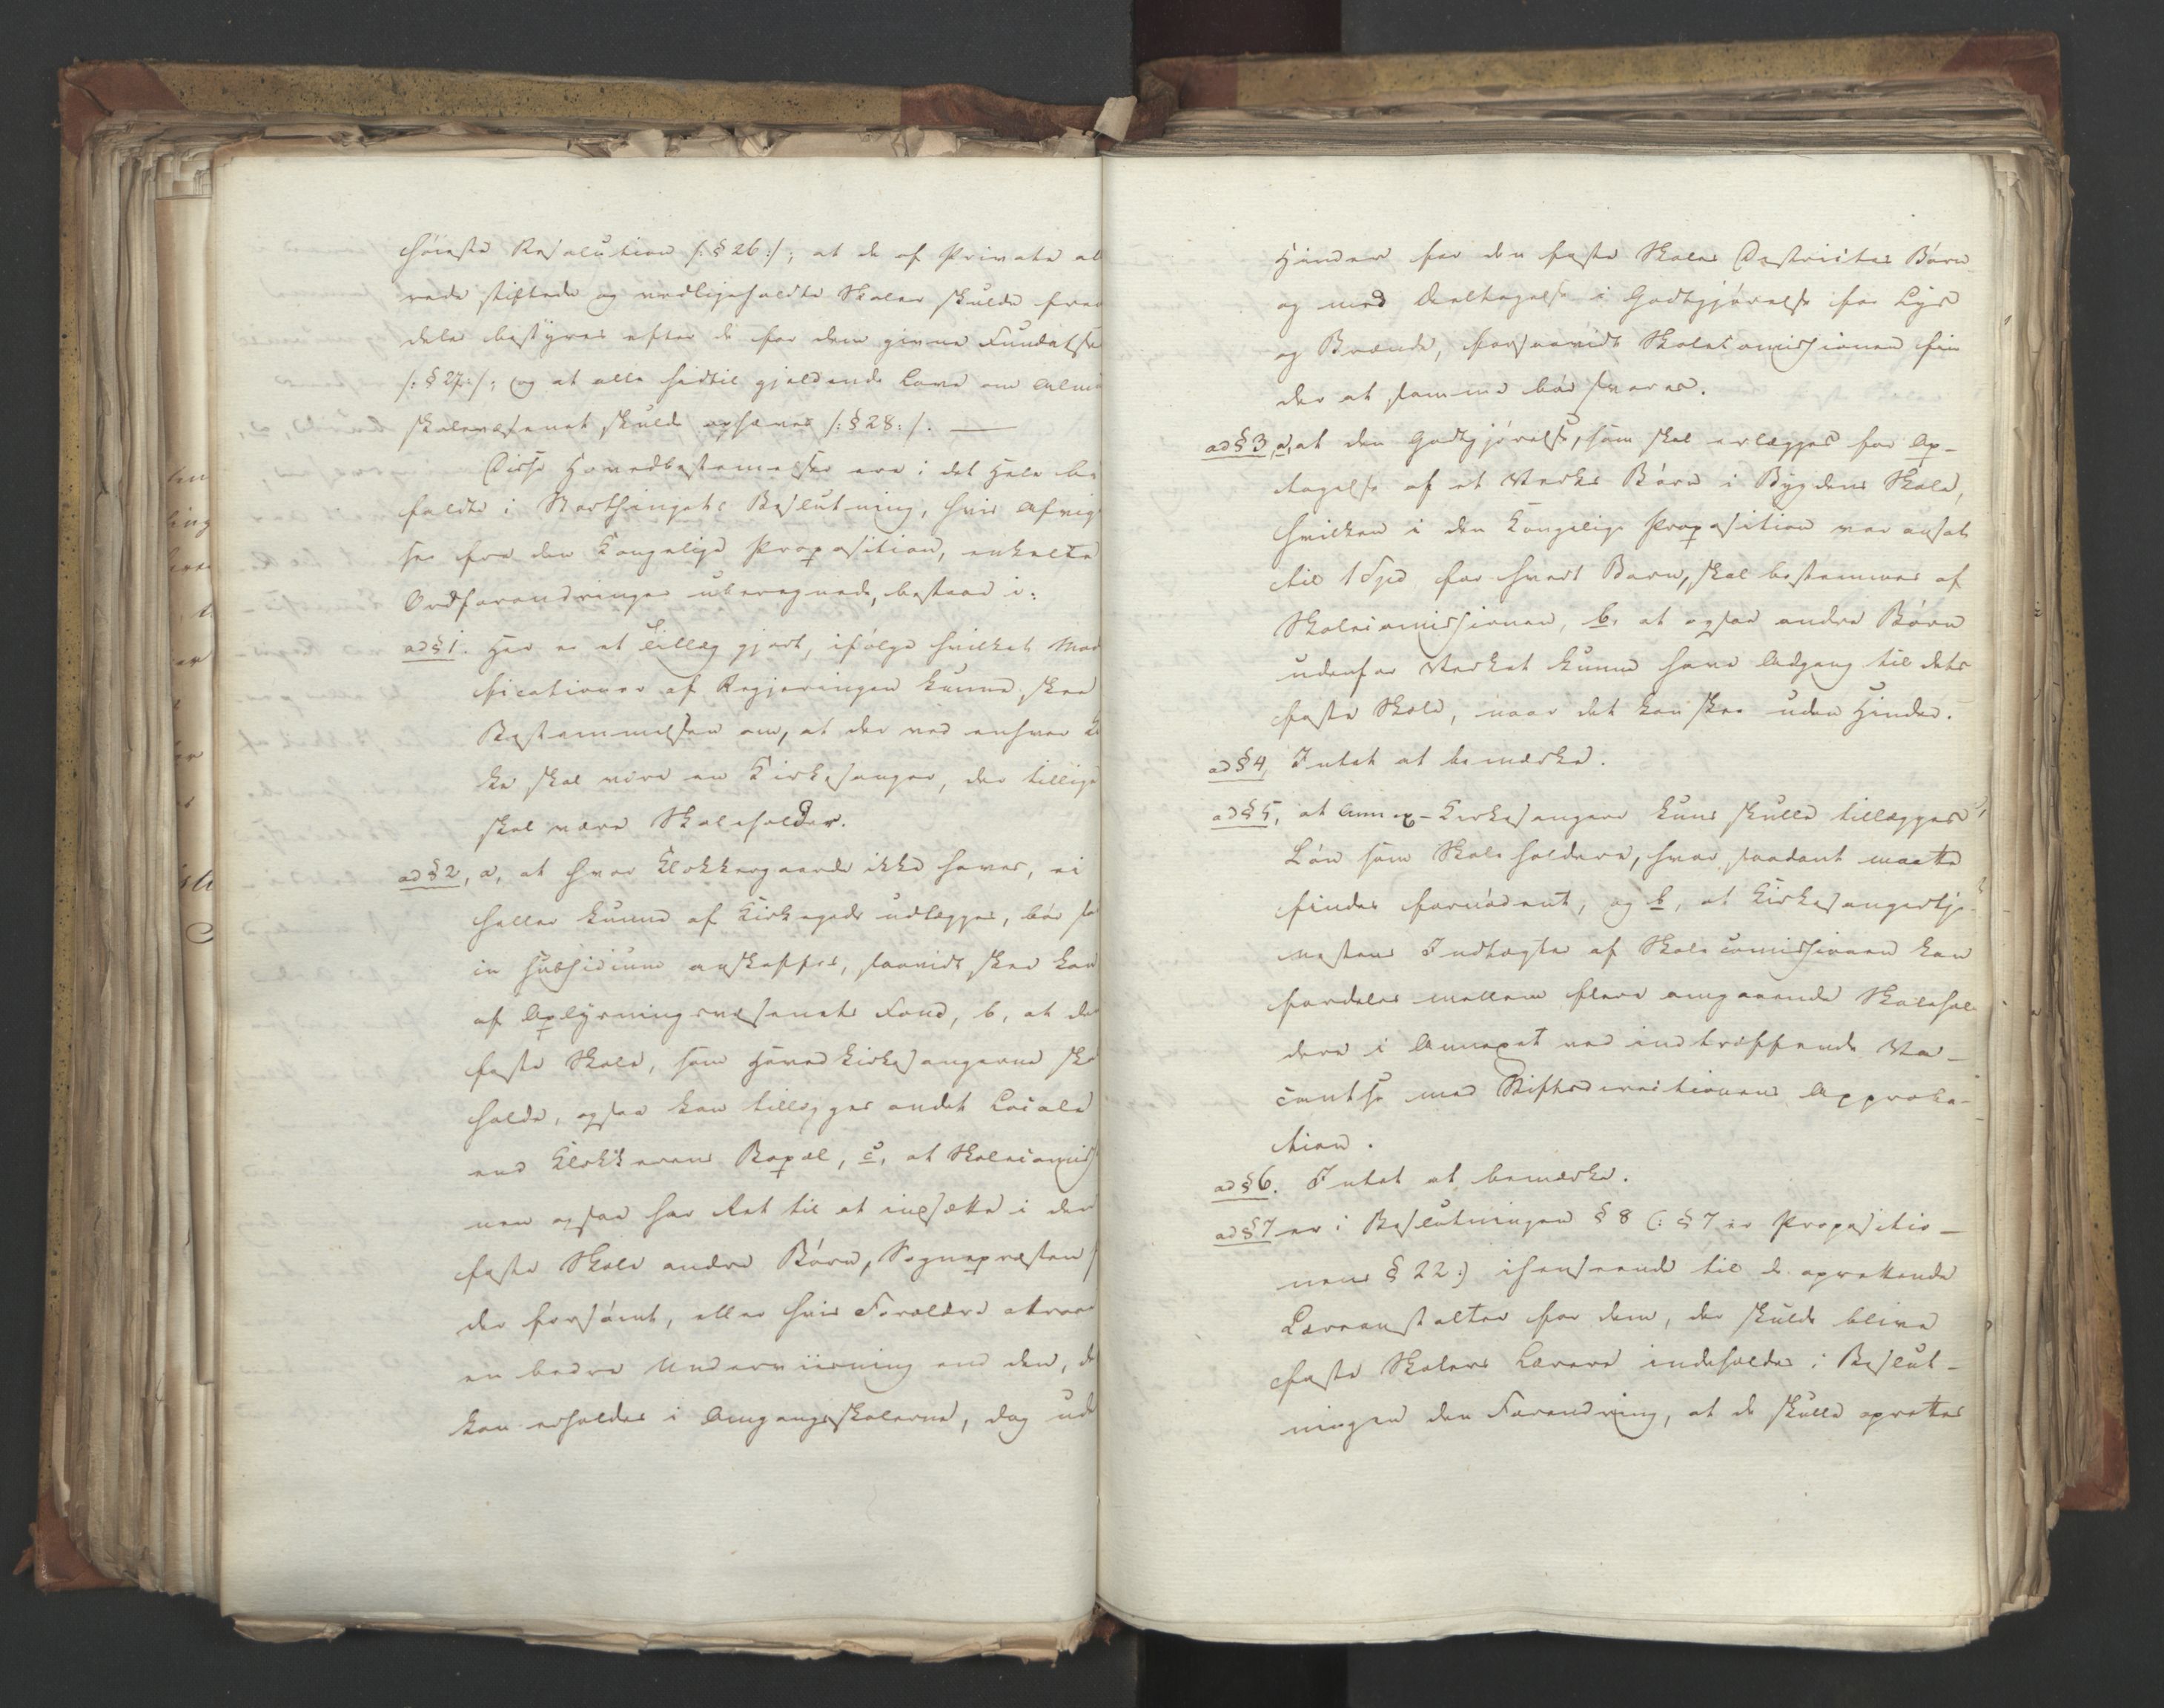 høieste Resolution /: § 26 :/; at de af Private al
rede stiftede og vedligeholdte Skoler skulde frem
deles bestyres efter de for dem givne Fundatser
/: § 27 :/; og at alle hidtil gjeldende Love om Almue
skolevæsenet skulde ophæves /: § 28 :/. —
Disse Hovedbestemmelser ere i det Hele be
holdte i Storthingets Beslutning, hvis Afvigel
ser fra den Kongelige Proposition, enkelte
Ordforandringer uberegnede, bestaae i:
ad § 1. Her er et Tillæg gjort, ifølge hvilket Modi
ficationer af Regjeringen kunne skee
Bestemmelsen om, at der ved enhver Kir
ke skal være en Kirkesanger, der tillige
skal være Skoleholder.
ad § 2, a, at hvor Klokkergaarde ikke haves, ei
heller kunne af Kirkegods udlægges, bør de
in subsidium anskaffes, saavidt skee kan
af Oplysningsvæsenets Fond, b, at den
faste Skole, som Hovedkirkesangerne skal
holde, ogsaa kan tillægges andet Locale
end Klokkerens Bopæl, c, at Skolecommissio
nen ogsaa har Ret til at indsætte i den
faste Skole andre Børn, Sognepræsten fin
der forsømt, eller hvis Forældre attraae
en bedre Underviisning end den, der
kan erholdes i Omgangsskolerne, dog uden
Hinder for den faste Skoles Districtes Børn
og med Deeltagelse i Godtgjørelse for Lys
og Brænde, forsaavidt Skolecomissionen fin
der at samme bør svares.
ad § 3, a, at den Godtgjørelse, som skal erlægges for Op-
tagelse af et Verks Børn i Bygdens Skole,
hvilken i den Kongelige Proposition var ansat
til 1 Spd for hvert Barn, skal bestemmes af
Skolecomissionen, b, at ogsaa andre Børn
udenfor Verket kunne have Adgang til dets
faste Skole, naar det kan skee uden Hinder.
ad § 4, Intet at bemærke.
ad § 5, at Annex-Kirkesangere kuns skulle tillægges
Løn som Skoleholdere, hvor saadant maatte
findes fornødent, og b, at Kirkesangertje-
nestens Indtægter af Skolecomissionen kan
fordeles mellem flere omgaaende Skolehol
dere i Annexet ved indtræffende Va-
cantse med Stiftsdirectionens Approba-
tion.
ad § 6. Intet at bemærke.
ad § 7 er i Beslutningen § 8 (: § 7 er Propositio-
nens § 22 :) ihenseende til de oprettende
Læreanstalter for dem, der skulde blive
faste Skolers Lærere indeholdes i Beslut-
ningen den Forandring, at de skulle oprettes